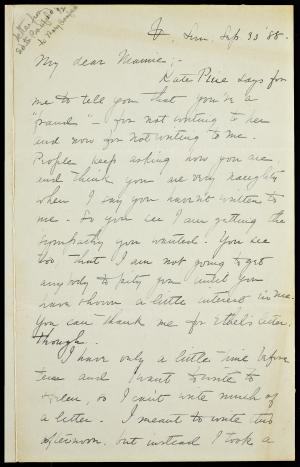 Letter from
to Mary
Sun, Sep. 30 '88.
My dear Mamie; -
Kate Pine says for
me to tell you that you're a
"fraud" - for not writing to her
and now for not writing to me.
People keep asking how you are,
and think you are very naughty
when I say you haven't written to
me. So you see I am getting the
sympathy you wanted. You see
too, that I am not going to get
anybody to pity you until you
have shown a little interest in me.
You can thank me for Ethel's letter,
though.
I have only a little time before
tea and I want to write to
so I can't write much of
a letter. I meant to write this
afternoon, but instead I took a